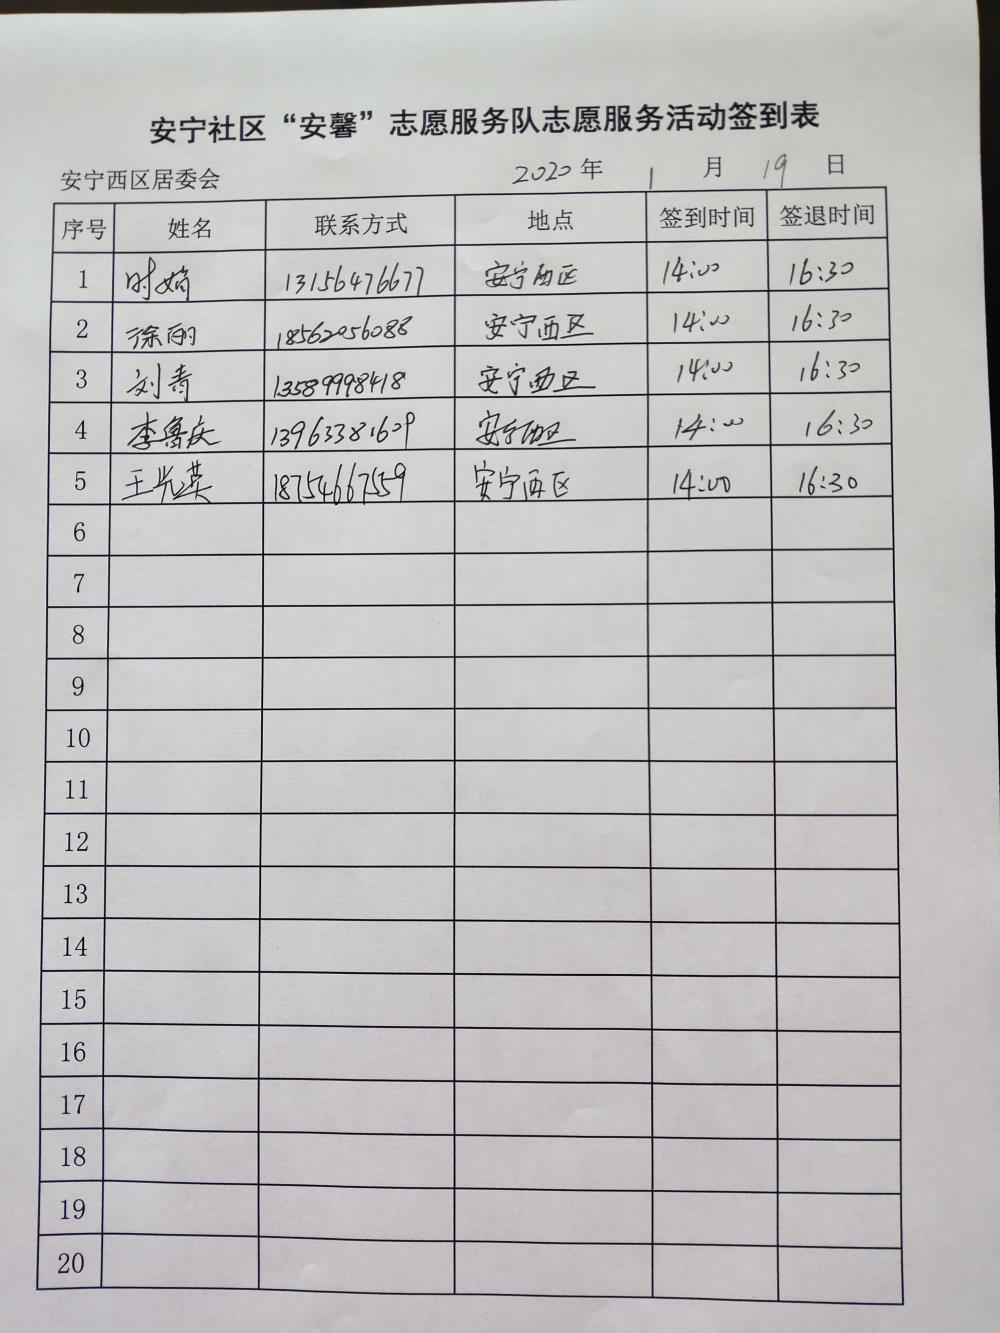 安宁社区“安馨”志愿服务队志愿服务活动签到表
安宁西区居委会 2020年 1月 19日
序号 姓名 联系方式 地点 签到时间 签退时间
1 时娟 13156476677 安宁西区 14:00 16:30
2 徐丽 18562056088 安宁西区 14:00 16:30
3 刘青 13589998418 安宁西区 14:00 16:30
4 李鲁庆 13963381609 安宁西区 14:00 16:30
5 王光英 18754667559 安宁西区 14:00 16:30
6
7
8
9
10
11
12
13
14
15
16
17
18
19
20